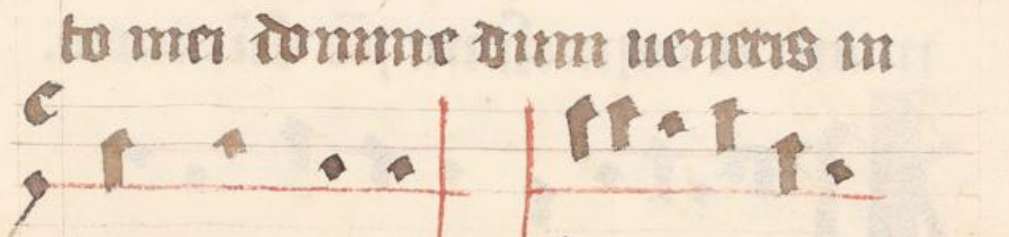 to mei domine dum ueneris in